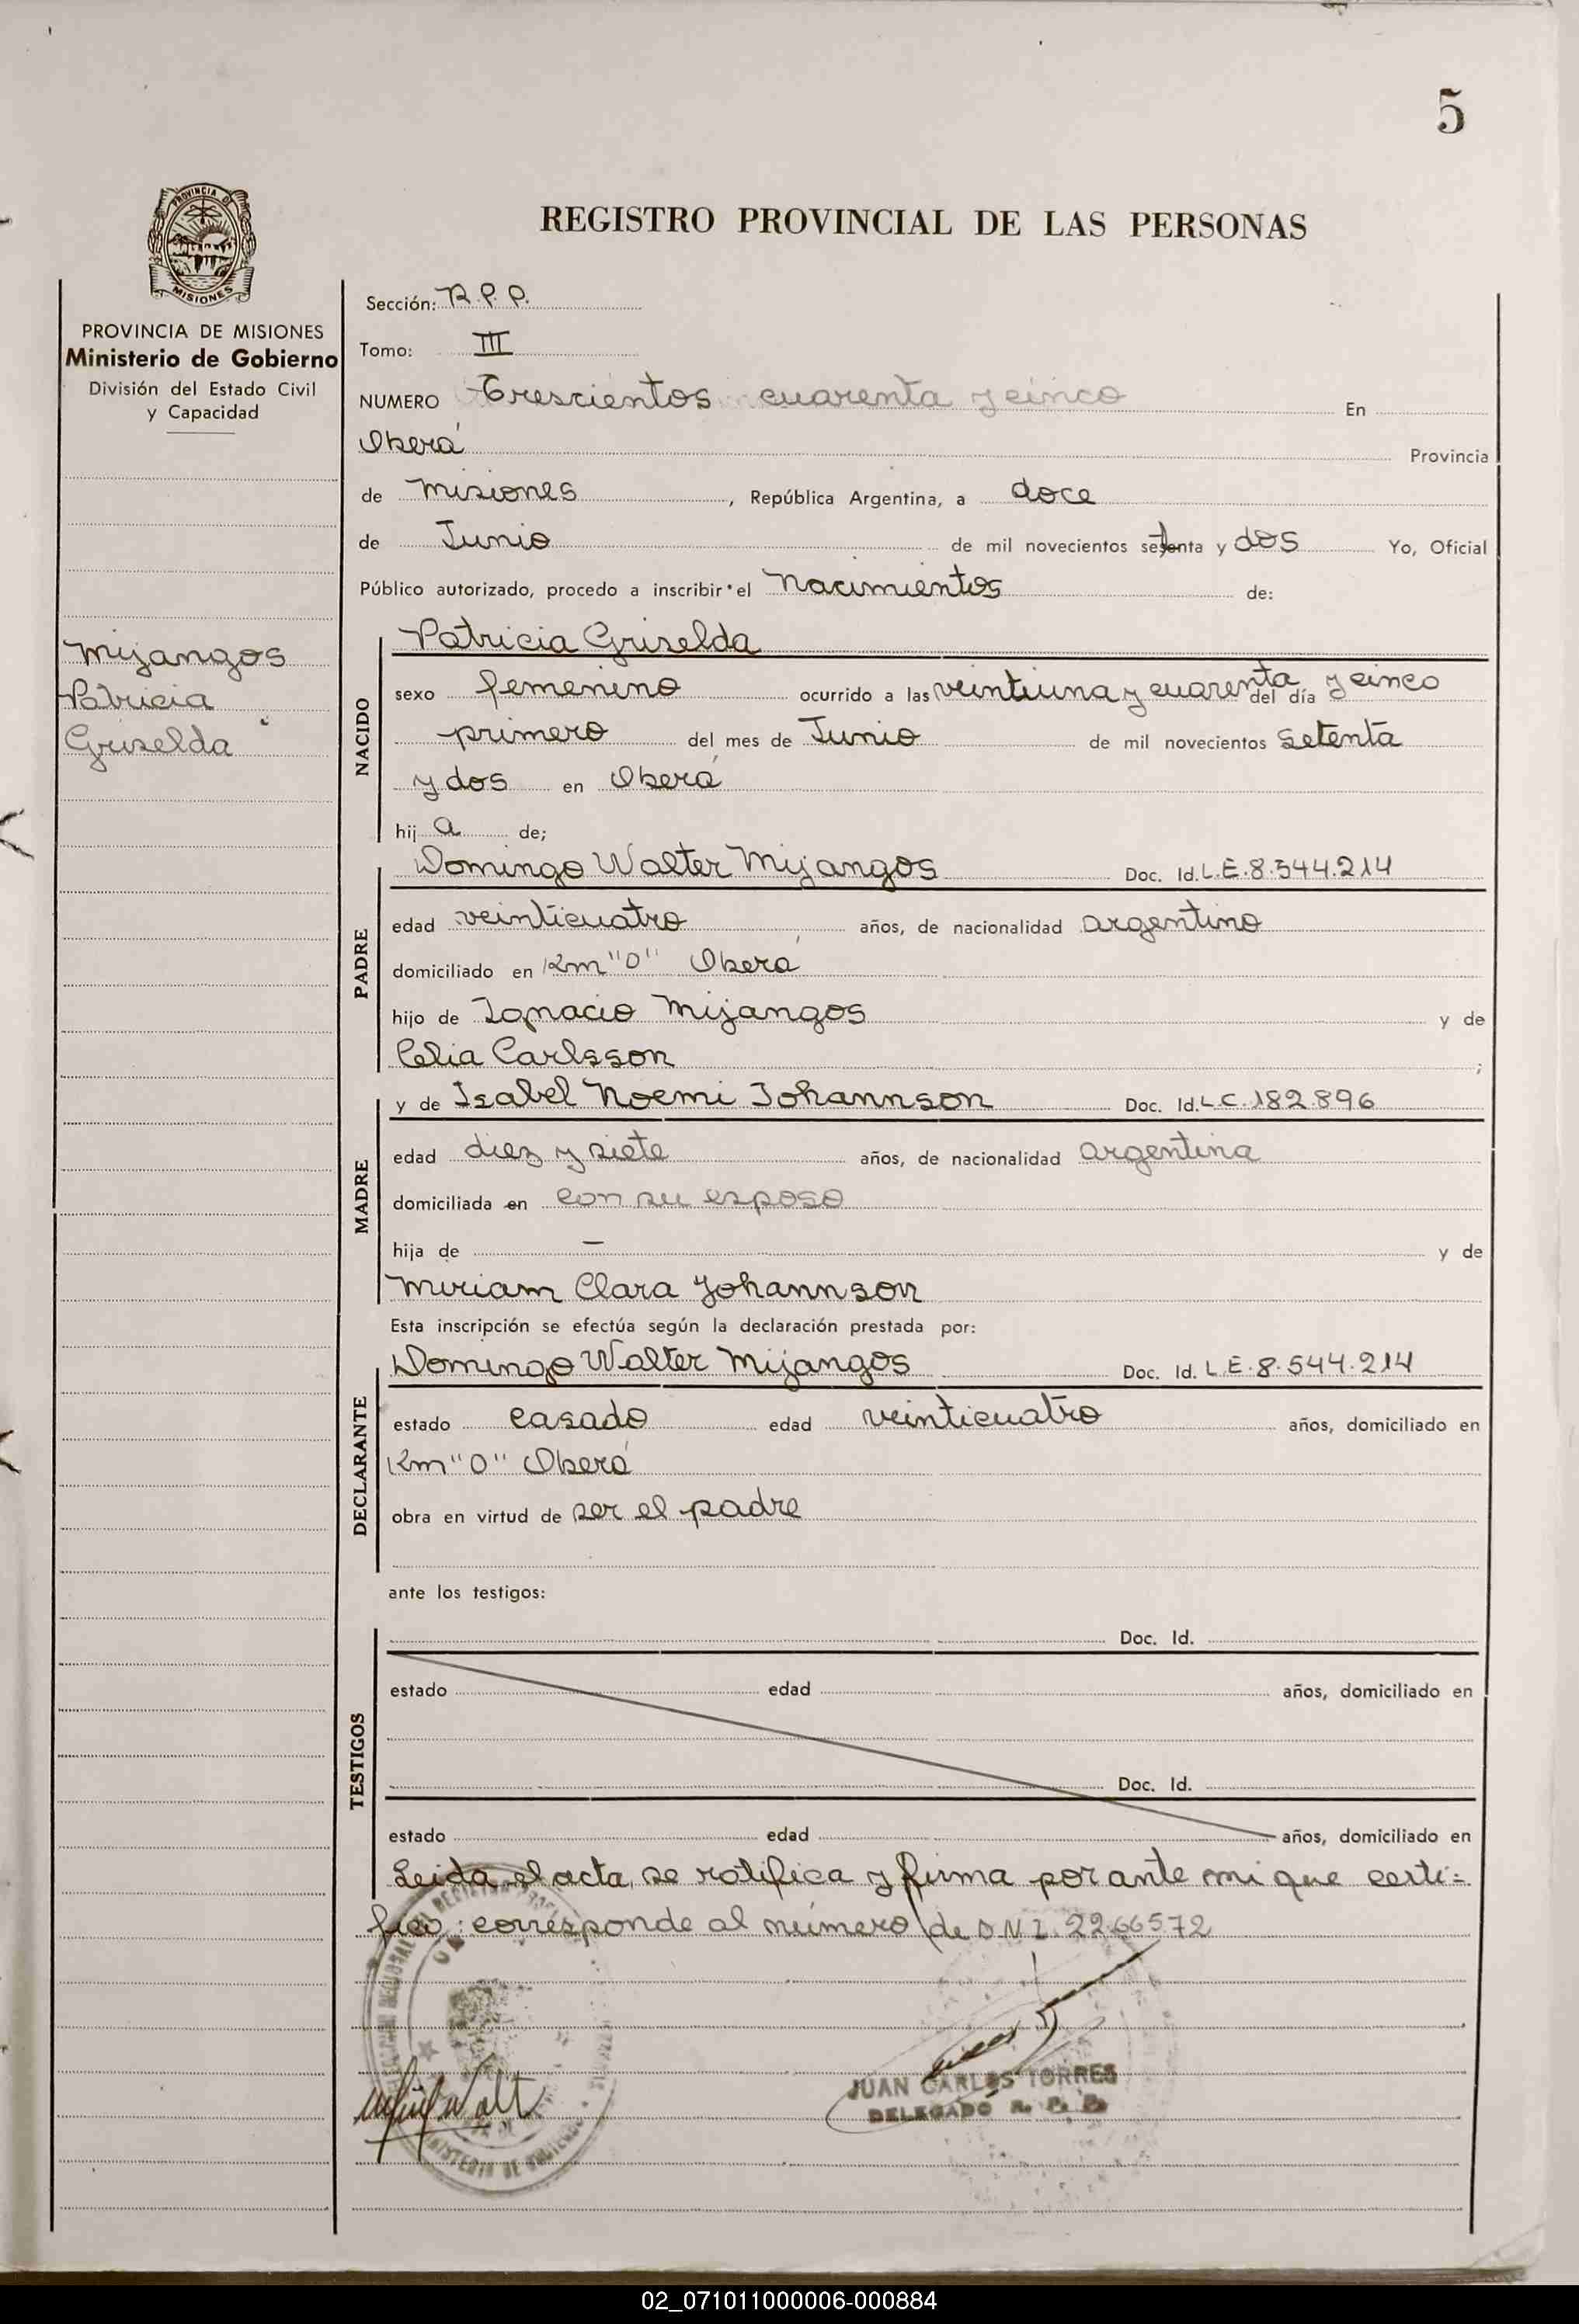 5
PROVINCIA DE
MISIONES
PROVINCIA DE MISIONES
Ministerio de Gobierno
División del Estado Civil
y Capacidad
Mijangos
Patricia
Griselda
REGISTRO PROVINCIAL DE LAS PERSONAS
Sección: R.P.P.
Tomo: III
NUMERO Trescientos cuarenta y cinco En
Oberá Provincia
de Misiones, República Argentina, a doce
de Junio de mil novecientos setenta y dos Yo, Oficial
Público autorizado, procedo a inscribir el Nacimientos de:
NACIDO
Patricia Griselda
sexo femenino ocurrido a las veintiuna y cuarenta y cinco del día
primero del mes de Junio de mil novecientos setenta
y dos en Oberá
hij a de;
PADRE
Domingo Walter Mijangos Doc. Id. L.E.8.544.214
edad veinticuatro años, de nacionalidad argentino
domiciliado en Km "0" Oberá
hijo de Ignacio Mijangos y de
Celia Carlsson ;
MADRE
y de Isabel Noemi Johannson Doc. Id. L.C.182.896
edad diez y siete años, de nacionalidad argentina
domiciliada en con su esposo
hija de — y de
Miriam Clara Johannson
Esta inscripción se efectúa según la declaración prestada por:
DECLARANTE
Domingo Walter Mijangos Doc. Id. L.E.8.544.214
estado casado edad veinticuatro años, domiciliado en
Km "0" Oberá
obra en virtud de ser el padre
ante los testigos:
TESTIGOS
Doc. Id.
estado edad años, domiciliado en
Doc. Id.
estado edad años, domiciliado en
Leida el acta, se ratifica y firma por ante mi que certi=
fico: corresponde al número de D.N.I. 2266572
JUAN CARLOS TORRES
DELEGADO R. P. P.
02_071011000006-000884